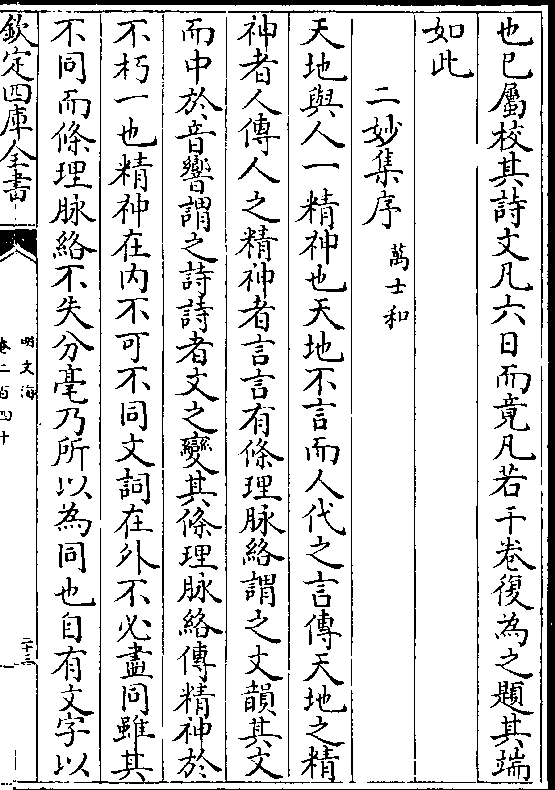 也已屬校其詩文凡六日而竟凡若干卷復為之題其端
如此
二妙集序 萬士和
天地與人一精神也天地不言而人代之言傳天地之精
神者人傳人之精神者言言有條理脉絡謂之文韻其文
而中於音響謂之詩詩者文之變其條理脉絡傳精神於
不朽一也精神在内不可不同文詞在外不必盡同雖其
不同而條理脉絡不失分毫乃所以為同也自有文字以
欽定四庫全書
明文海
卷二百四十
二十三